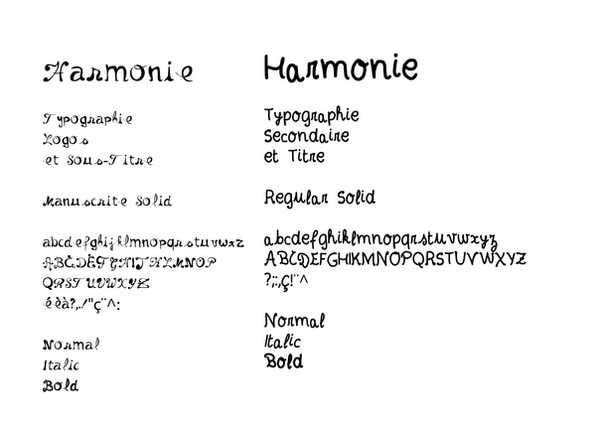 Harmonie
Typographie
Logos
et Sous-Titre
Manuscrite Solid
abcdefghijklmnopqrstuvwxz
ABCDEFGHIJKLMNOP
QRSTUVWXYZ
éèà?,./"ç¨^:
Normal
Italic
Bold
Harmonie
Typographie
Secondaire
et Titre
Regular Solid
abcdefghiklmnopqrstuvwxyz
ABCDEFGHIKMNOPQRSTUVWXYZ
?;:,ç!¨^
Normal
Italic
Bold